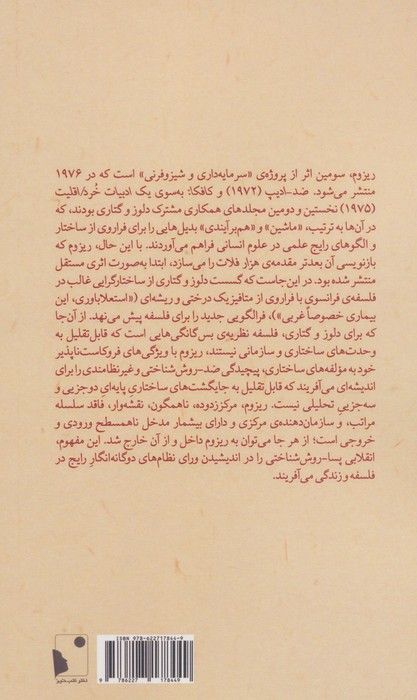 ریزوم، سومین اثر از پروژه‌ی «سرمایه‌داری و شیزوفرنی» است که در ۱۹۷۶
منتشر می‌شود. ضد-ادیپ (۱۹۷۲) و کافکا: به‌سوی یک ادبیات خُرد/اقلیت
(۱۹۷۵) نخستین و دومین مجلدهای همکاری مشترک دلوز و گتاری بودند، که
در آن‌ها به ترتیب، «ماشین» و «هم‌برآیندی» بدیل‌هایی را برای فراروی از ساختار
و الگوهای رایج علمی در علوم انسانی فراهم می‌آوردند. با این حال، ریزوم که
بازنویسی آن بعدتر مقدمه‌ی هزار فلات را می‌سازد، ابتدا به‌صورت اثری مستقل
منتشر شده بود. در این‌جاست که گسست دلوز و گتاری از ساختارگرایی غالب در
فلسفه‌ی فرانسوی با فراروی از متافیزیک درختی و ریشه‌ای («استعلاباوری، این
بیماری خصوصاً غربی»)، فراالگویی جدید را برای فلسفه پیش می‌نهد. از آن‌جا
که برای دلوز و گتاری، فلسفه نظریه‌ی بس‌گانگی‌هایی است که قابل‌تقلیل به
وحدت‌های ساختاری و سازمانی نیستند، ریزوم با ویژگی‌های فروکاست‌ناپذیر
خود به مؤلفه‌های ساختاری، پیچیدگی ضد-روش‌شناختی و غیرنظامندی را برای
اندیشه‌ای می‌آفریند که قابل تقلیل به جایگشت‌های ساختاریِ پایه‌ایِ دوجزیی و
سه‌جزییِ تحلیلی نیست. ریزوم، مرکززدوده، ناهمگون، نقشه‌وار، فاقد سلسله
مراتب، و سازمان‌دهنده‌ی مرکزی و دارای بیشمار مدخل ناهمسطح ورودی و
خروجی است؛ از هر جا می‌توان به ریزوم داخل و از آن خارج شد. این مفهوم،
انقلابی پسا-روش‌شناختی را در اندیشیدن ورای نظام‌های دوگانه‌انگار رایج در
فلسفه و زندگی می‌آفریند.
ISBN 978-622717844-9
9 786227 178449